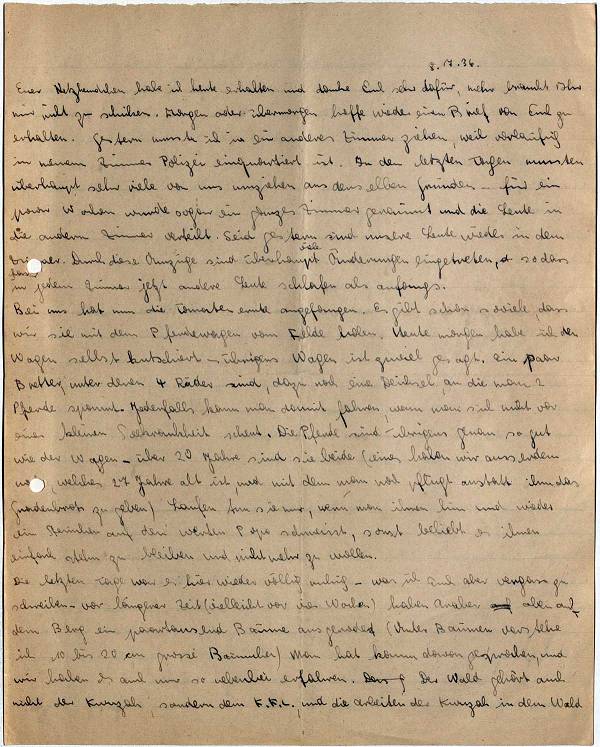 8.7.36.
Euer Netzhemdchen habe ich heute erhalten und danke Euch sehr dafür, mehr braucht Ihr
mir nicht zu schicken. Morgen oder übermorgen hoffe wieder einen Brief von Euch zu
erhalten. Gestern musste ich in ein anderes Zimmer ziehen, weil vorläufig
in meinem Zimmer Polizei einquartiert ist. In den letzten Tagen mussten
überhaupt sehr viele von uns umziehen aus denselben Gründen – für ein
paar Wochen wurde sogar ein ganzes Zimmer geräumt und die Leute in
die anderen Zimmer verteilt. Seid gestern sind unsere Leute wieder in dem
Zimmer. Durch diese Umzüge sind überhaupt viele Änderungen eingetreten, sodass
in jedem Zimmer jetzt andere Leute schlafen als anfangs.
Bei uns hat nun die Tomatenernte angefangen. Es gibt schon soviele, dass
wir sie mit dem Pferdewagen vom Felde holen. Heute morgen habe ich den
Wagen selbst kutschiert – übrigens Wagen ist zuviel gesagt. ein paar
Bretter, unter denen 4 Räder sind, dazu noch eine Deichsel, an die man 2
Pferde spannt. Jedenfalls kann man damit fahren, wenn man sich nicht vor
einer kleinen Seekrankheit scheut. Die Pferde sind übrigens genau so gut
wie der Wagen – über 20 Jahre sind sie beide (eines haben wir ausserdem
noch, welches 27 Jahre alt ist und mit dem man noch pflügt anstatt ihm das
Gnadenbrot zu geben) Laufen tun sie nur, wenn man ihnen hin und wieder
ein Steinchen auf den werten Popo schmeisst, sonst beliebt es ihnen
einfach stehn zu bleiben und nicht mehr zu wollen.
Die letzten Tage war es hier wieder völlig ruhig – was ich Euch aber vergass zu
schreiben – vor längerer Zeit (vielleicht vor vier Wochen) haben Araber oben auf
dem Berg ein paartausend Bäume ausgerodet (Unter Bäumen verstehe
ich 10 bis 20 cm grosse Bäumchen) Man hat kaum davon gesprochen, und
wir haben es auch nur so nebenbei erfahren. Der Wald gehört auch
nicht der Kwuzah, sondern dem K.K.L. und die arbeiten der Kwuzah in dem Wald